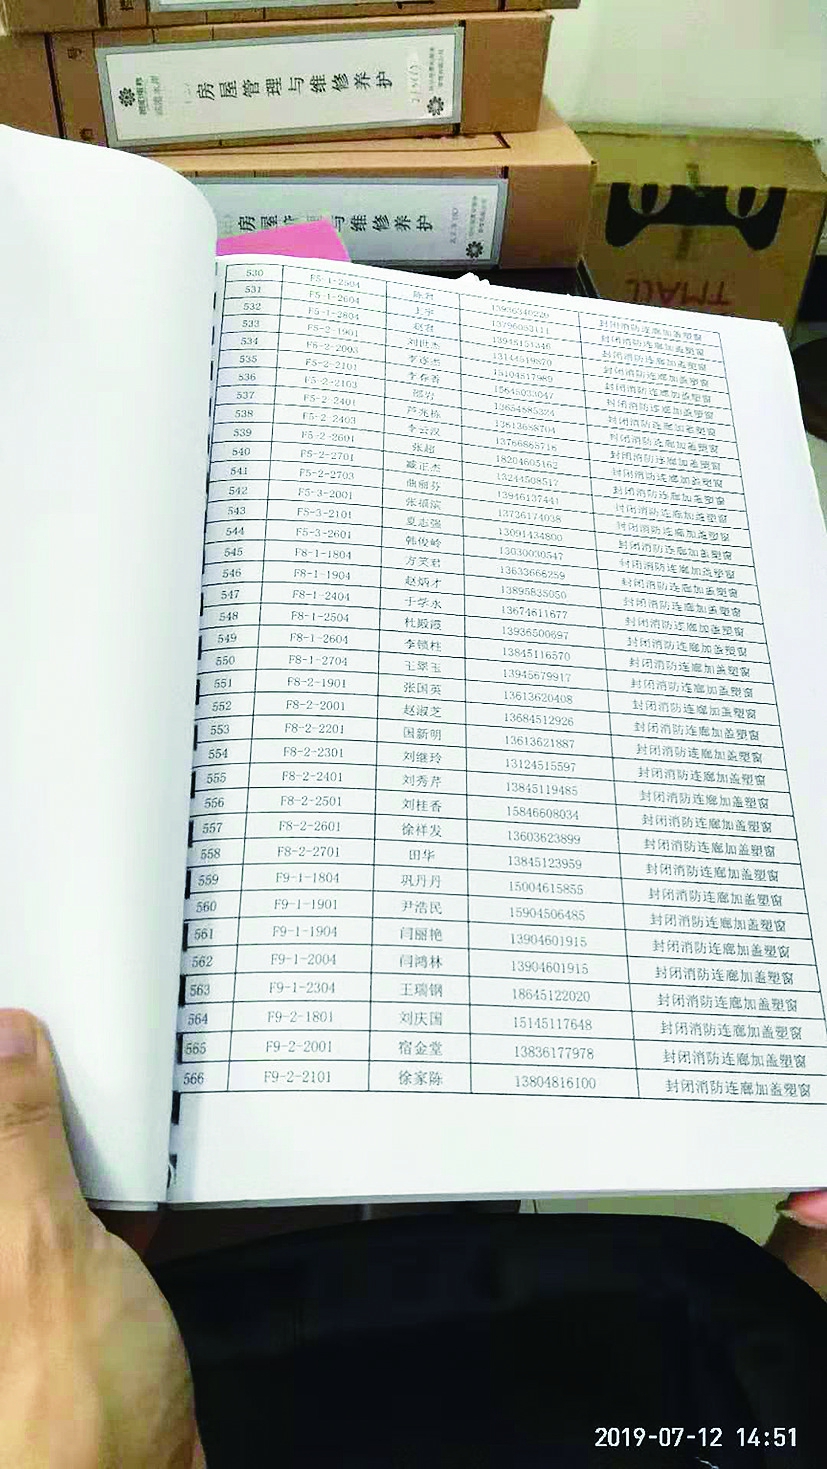 房屋管理与维修养护
房屋 与维修养护
TMALL
530 F5-1-2504 陈君 13936340220 封闭消防连廊加盖塑窗
531 F5-1-2604 13796053111 封闭消防连廊加盖塑窗
532 F5-1-2804 赵君 13945151346 封闭消防连廊加盖塑窗
533 F5-2-1901 刘世杰 13144519870 封闭消防连廊加盖塑窗
534 F5-2-2003 李彦杰 15104517989 封闭消防连廊加盖塑窗
535 F5-2-2101 李春香 15645033047 封闭消防连廊加盖塑窗
536 F5-2-2103 邵岩 13654585324 封闭消防连廊加盖塑窗
537 F5-2-2401 芦兆栋 13613688704 封闭消防连廊加盖塑窗
538 F5-2-2403 李云汉 13766885716 封闭消防连廊加盖塑窗
539 F5-2-2601 张超 18204605162 封闭消防连廊加盖塑窗
540 F5-2-2701 臧正杰 13244508517 封闭消防连廊加盖塑窗
541 F5-2-2703 曲丽芬 13946137441 封闭消防连廊加盖塑窗
542 F5-3-2001 张福滨 13736174038 封闭消防连廊加盖塑窗
543 F5-3-2101 夏志强 13091434800 封闭消防连廊加盖塑窗
544 F5-3-2601 韩俊岭 13030030547 封闭消防连廊加盖塑窗
545 F8-1-1804 方笑君 13633666259 封闭消防连廊加盖塑窗
546 F8-1-1904 赵炳才 13895835050 封闭消防连廊加盖塑窗
547 F8-1-2404 于学永 13674611677 封闭消防连廊加盖塑窗
548 F8-1-2504 杜殿霞 13936500697 封闭消防连廊加盖塑窗
549 F8-1-2604 李锁柱 13845116570 封闭消防连廊加盖塑窗
550 F8-1-2704 王翠玉 13945679917 封闭消防连廊加盖塑窗
551 F8-2-1901 张国英 13613620408 封闭消防连廊加盖塑窗
552 F8-2-2001 赵淑芝 13684512926 封闭消防连廊加盖塑窗
553 F8-2-2201 国新明 13613621887 封闭消防连廊加盖塑窗
554 F8-2-2301 刘继玲 13124515597 封闭消防连廊加盖塑窗
555 F8-2-2401 刘秀芹 13845119485 封闭消防连廊加盖塑窗
556 F8-2-2501 刘桂香 15846608034 封闭消防连廊加盖塑窗
557 F8-2-2601 徐祥发 13603623899 封闭消防连廊加盖塑窗
558 F8-2-2701 田华 13845123959 封闭消防连廊加盖塑窗
559 F9-1-1804 巩丹丹 15004615855 封闭消防连廊加盖塑窗
560 F9-1-1901 尹浩民 15904506485 封闭消防连廊加盖塑窗
561 F9-1-1904 闫丽艳 13904601915 封闭消防连廊加盖塑窗
562 F9-1-2004 闫鸿林 13904601915 封闭消防连廊加盖塑窗
563 F9-1-2304 王瑞钢 18645122020 封闭消防连廊加盖塑窗
564 F9-2-1801 刘庆国 15145117648 封闭消防连廊加盖塑窗
565 F9-2-2001 宿金堂 13836177978 封闭消防连廊加盖塑窗
566 F9-2-2101 徐家陈 13804816100 封闭消防连廊加盖塑窗
2019-07-12 14:51